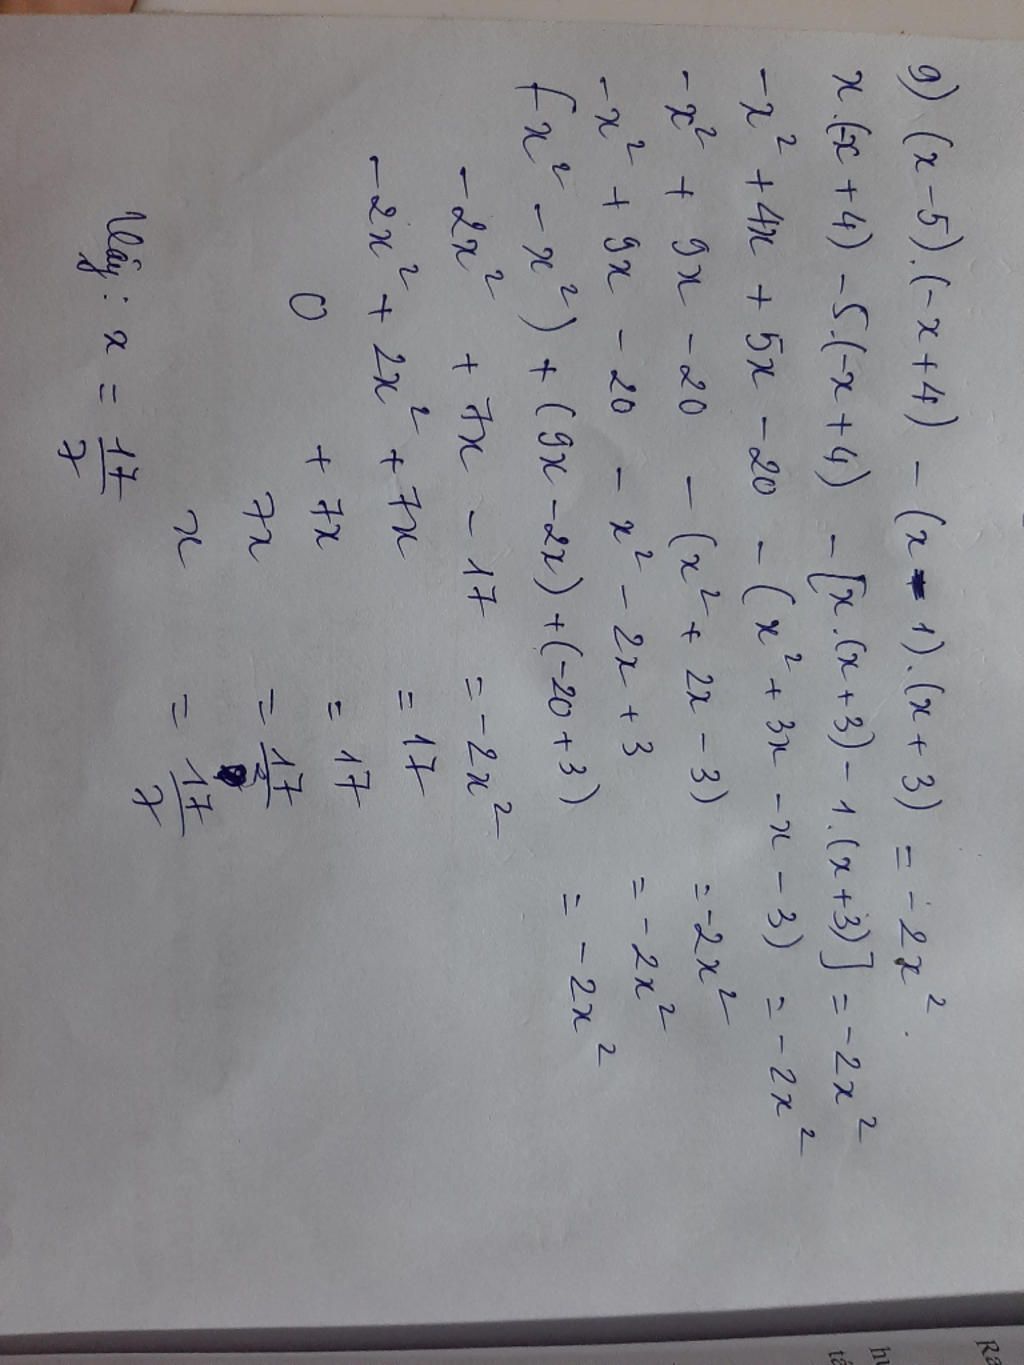 9) (x-5).(-x+4) - (x-1).(x+3) = -2x².
x.(-x+4) -5.(-x+4) - [x.(x+3) - 1.(x+3)] = -2x²
-x² + 4x + 5x - 20 - (x² + 3x - x - 3) = -2x²
-x² + 9x - 20 - (x² + 2x - 3) = -2x²
-x² + 9x - 20 - x² - 2x + 3 = -2x²
(-x² - x²) + (9x - 2x) + (-20 + 3) = -2x²
-2x² + 7x - 17 = -2x²
-2x² + 2x² + 7x = 17
0 + 7x = 17
7x = 17
x = 17/7
Vậy: x = 17/7